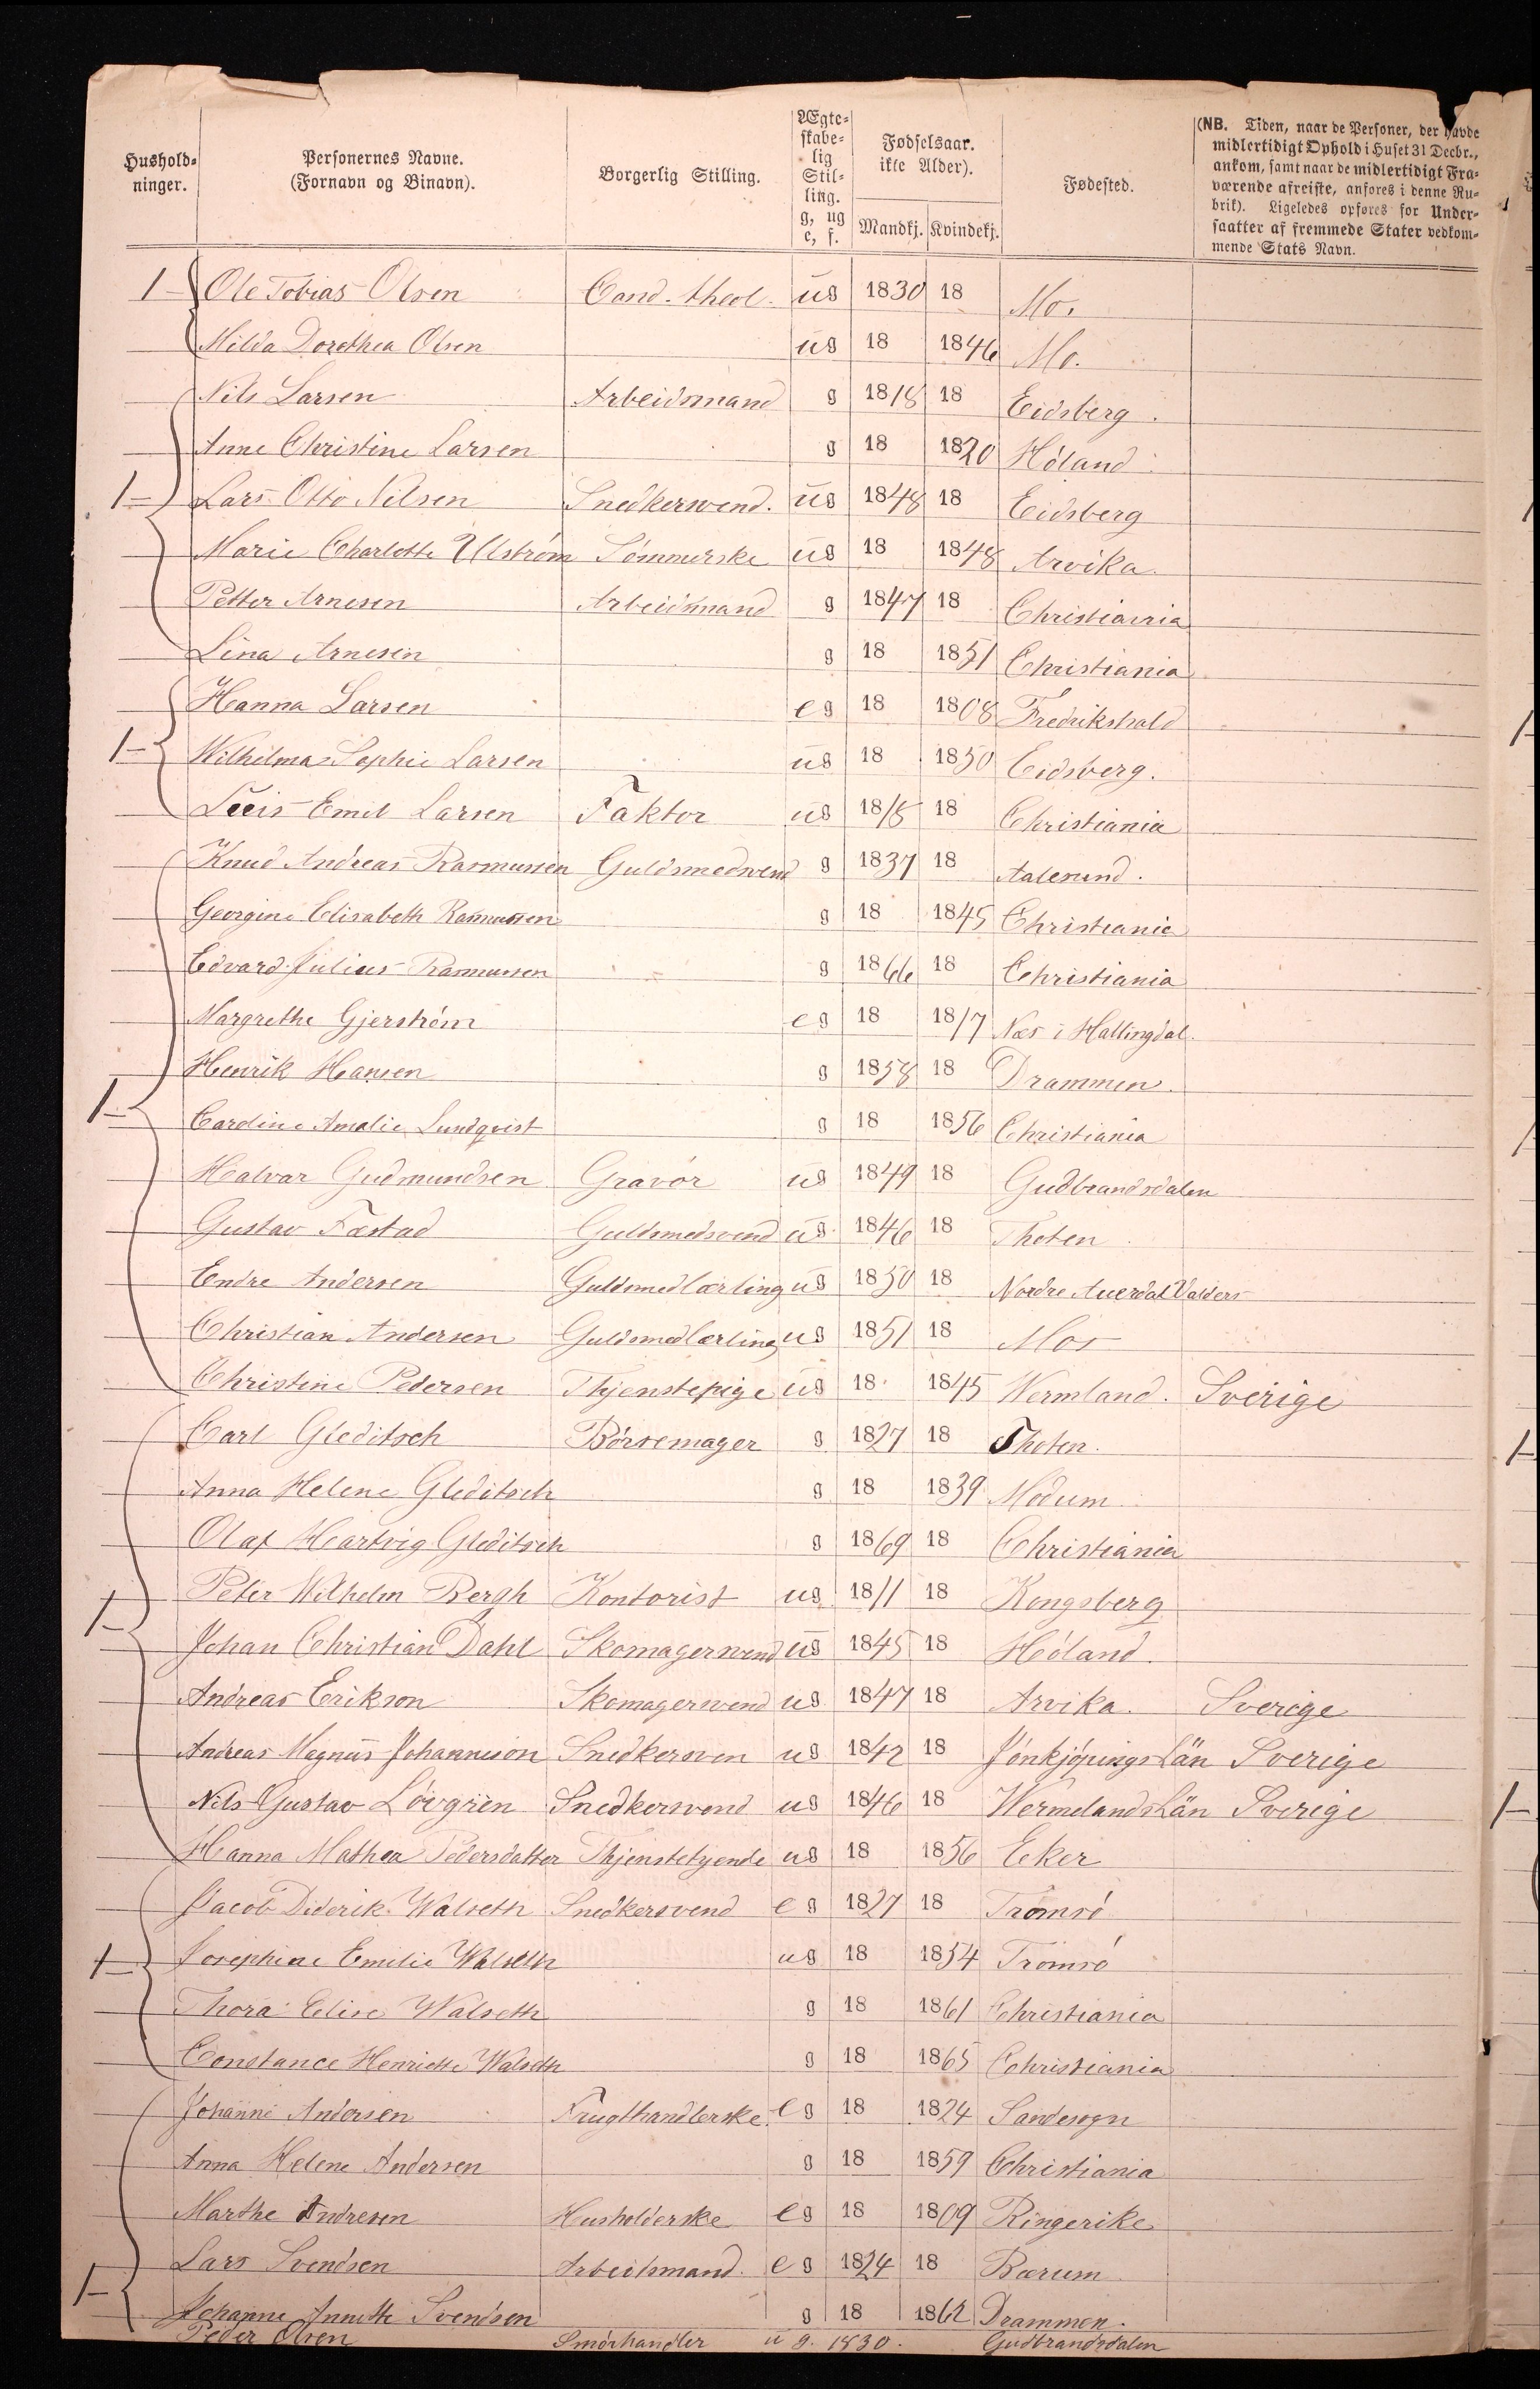 Hushold-
ninger.
Personernes Navne.
(Fornavn og Binavn).
Borgerlig Stilling.
Ægte-
skabe-
lig
Stil-
ling.
g, ug
e, f.
Fødselsaar.
ikke Alder).
Mandkj. Kvindekj.
Fødested.
(NB. Tiden, naar de Personer, der havde
midlertidigt Ophold i Huset 31 Decbr.,
ankom, samt naar de midlertidigt Fra-
værende afreiste, anføres i denne Ru-
brik). Ligeledes opføres for Under-
saatter af fremmede Stater vedkom-
mende Stats Navn.
1 Ole Tobias Olsen Cand. theol. ug 1830 18 Mo.
Milda Dorethea Olsen ug 18 1846 Mo.
Nils Larsen Arbeidsmand g 1818 18 Eidsberg.
Anne Christine Larsen g 18 1820 Høland
1 Lars Otto Nilsen Snedkersvend. ug 1848 18 Eidsberg
Marie Charlotte Ulstrøm Sømmerske ug 18 1848 Arvika.
Petter Arnesen Arbeidsmand g 1847 18 Christiania
Lina Arnesen g 18 1851 Christiania
Hanna Larsen eg 18 1808 Fredrikshald
1 Wilhelma Sophie Larsen ug 18 1850 Eidsberg.
Emil Larsen Faktor ug 1818 18 Christiania
Knud Andreas Rasmussen Guldsmedsvend g 1837 18 Aalesund.
Georgine Elisabeth Rasmussen g 18 1845 Christiania
Edvard Julius Rasmussen g 1866 18 Christiania
Margrethe Gjerstrøm eg 18 1817 Næs i Hallingdal.
Henrik Hansen g 1858 18 Drammen.
1 Caroline Amalie Lundqvist g 18 1856 Christiania
Halvar Gudmundsen Gravør ug 1849 18 Gudbrandsdalen
Gustav Fæstad Guldsmedsvend ug 1846 18 Thoten
Endre Andersen Guldsmedlærling ug 1850 18 Nordre Auerdal Valders
Christian Andersen Guldsmedlærling ug 1851 18 Mos
Christine Pedersen Thjenstepige ug 18 1845 Wermland. Sverige
Carl Gleditsch Børsemager g 1827 18 Thoten.
Anna Helene Gleditsch g 18 1839 Modum
Olaf Hartvig Gleditsch g 1869 18 Christiania
1 Peter Wilhelm Bergh Kontorist ug 1811 18 Kongsberg
Johan Christian Dahl Skomagersvend ug 1845 18 Høland.
Andreas Erikson Skomagersvend ug 1847 18 Arvika. Sverige
Andreas Magnus Johanneson Snedkersven ug 1842 18 Jønkjøpings Län Sverige
Nils Gustav Løvgrien Snedkersvend ug 1846 18 Wermelands Län Sverige
Hanna Mathea Pedersdatter Thjenstetyende ug 18 1856 Eker
Jacob Diderik Walseth Snedkersvend eg 1827 18 Tromsø
1 Josephine Emilie Walseth ug 18 1854 Tromsø
Thora Elise Walseth g 18 1861 Christiania
Constance Henriette Walseth g 18 1865 Christiania
Johanne Andersen Frugthandlerske. eg 18 1824 Sandesogn
Anna Helene Andersen g 18 1859 Christiania
Marthe Andresen Husholderske eg 18 1809 Ringerike
Lars Svendsen Arbeidsmand. eg 1824 18 Bærum
1 Johanne Annette Svendsen g 18 1862 Drammen.
Peder Olsen Smørhandler ug. 1830. Gudbrandsdalen